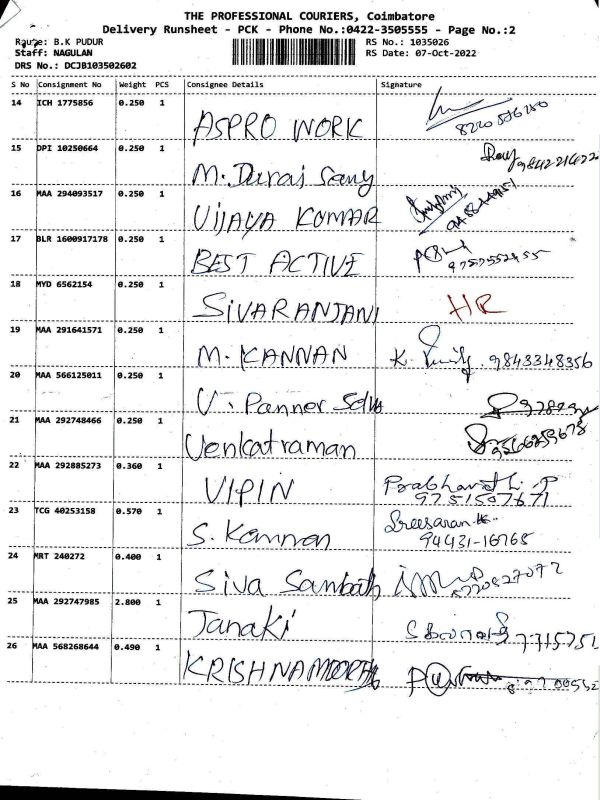 THE PROFESSIONAL COURIERS, Coimbatore
Delivery Runsheet - PCK - Phone No.:0422-3505555 - Page No.:2
Route: B.K PUDUR RS No.: 1035026
Staff: NAGULAN RS Date: 07-Oct-2022
DRS No.: DCJB103502602
S No Consignment No Weight PCS Consignee Details Signature
14 ICH 1775856 0.250 1
ASPRO WORK
15 DPI 10250664 0.250 1
M. Durai Samy
16 MAA 294093517 0.250 1
VIJAYA KUMAR
17 BLR 1600917178 0.250 1
BEST ACTIVE
18 MYD 6562154 0.250 1
SIVARANJANI HR
19 MAA 291641571 0.250 1
M. KANNAN K. 9843348356
20 MAA 566125011 0.250 1
V. Panner Selva
21 MAA 292748466 0.250 1
Venkatraman 9566259678
22 MAA 292885273 0.360 1
VIPIN Prabharathi. P
9751507671
23 TCG 40253158 0.570 1
S. Kannan Sreesaran
94431-16768
24 MRT 240272 0.400 1
Siva Sambath
25 MAA 292747985 2.800 1
Janaki
26 MAA 568268644 0.490 1
KRISHNAMOORTHY